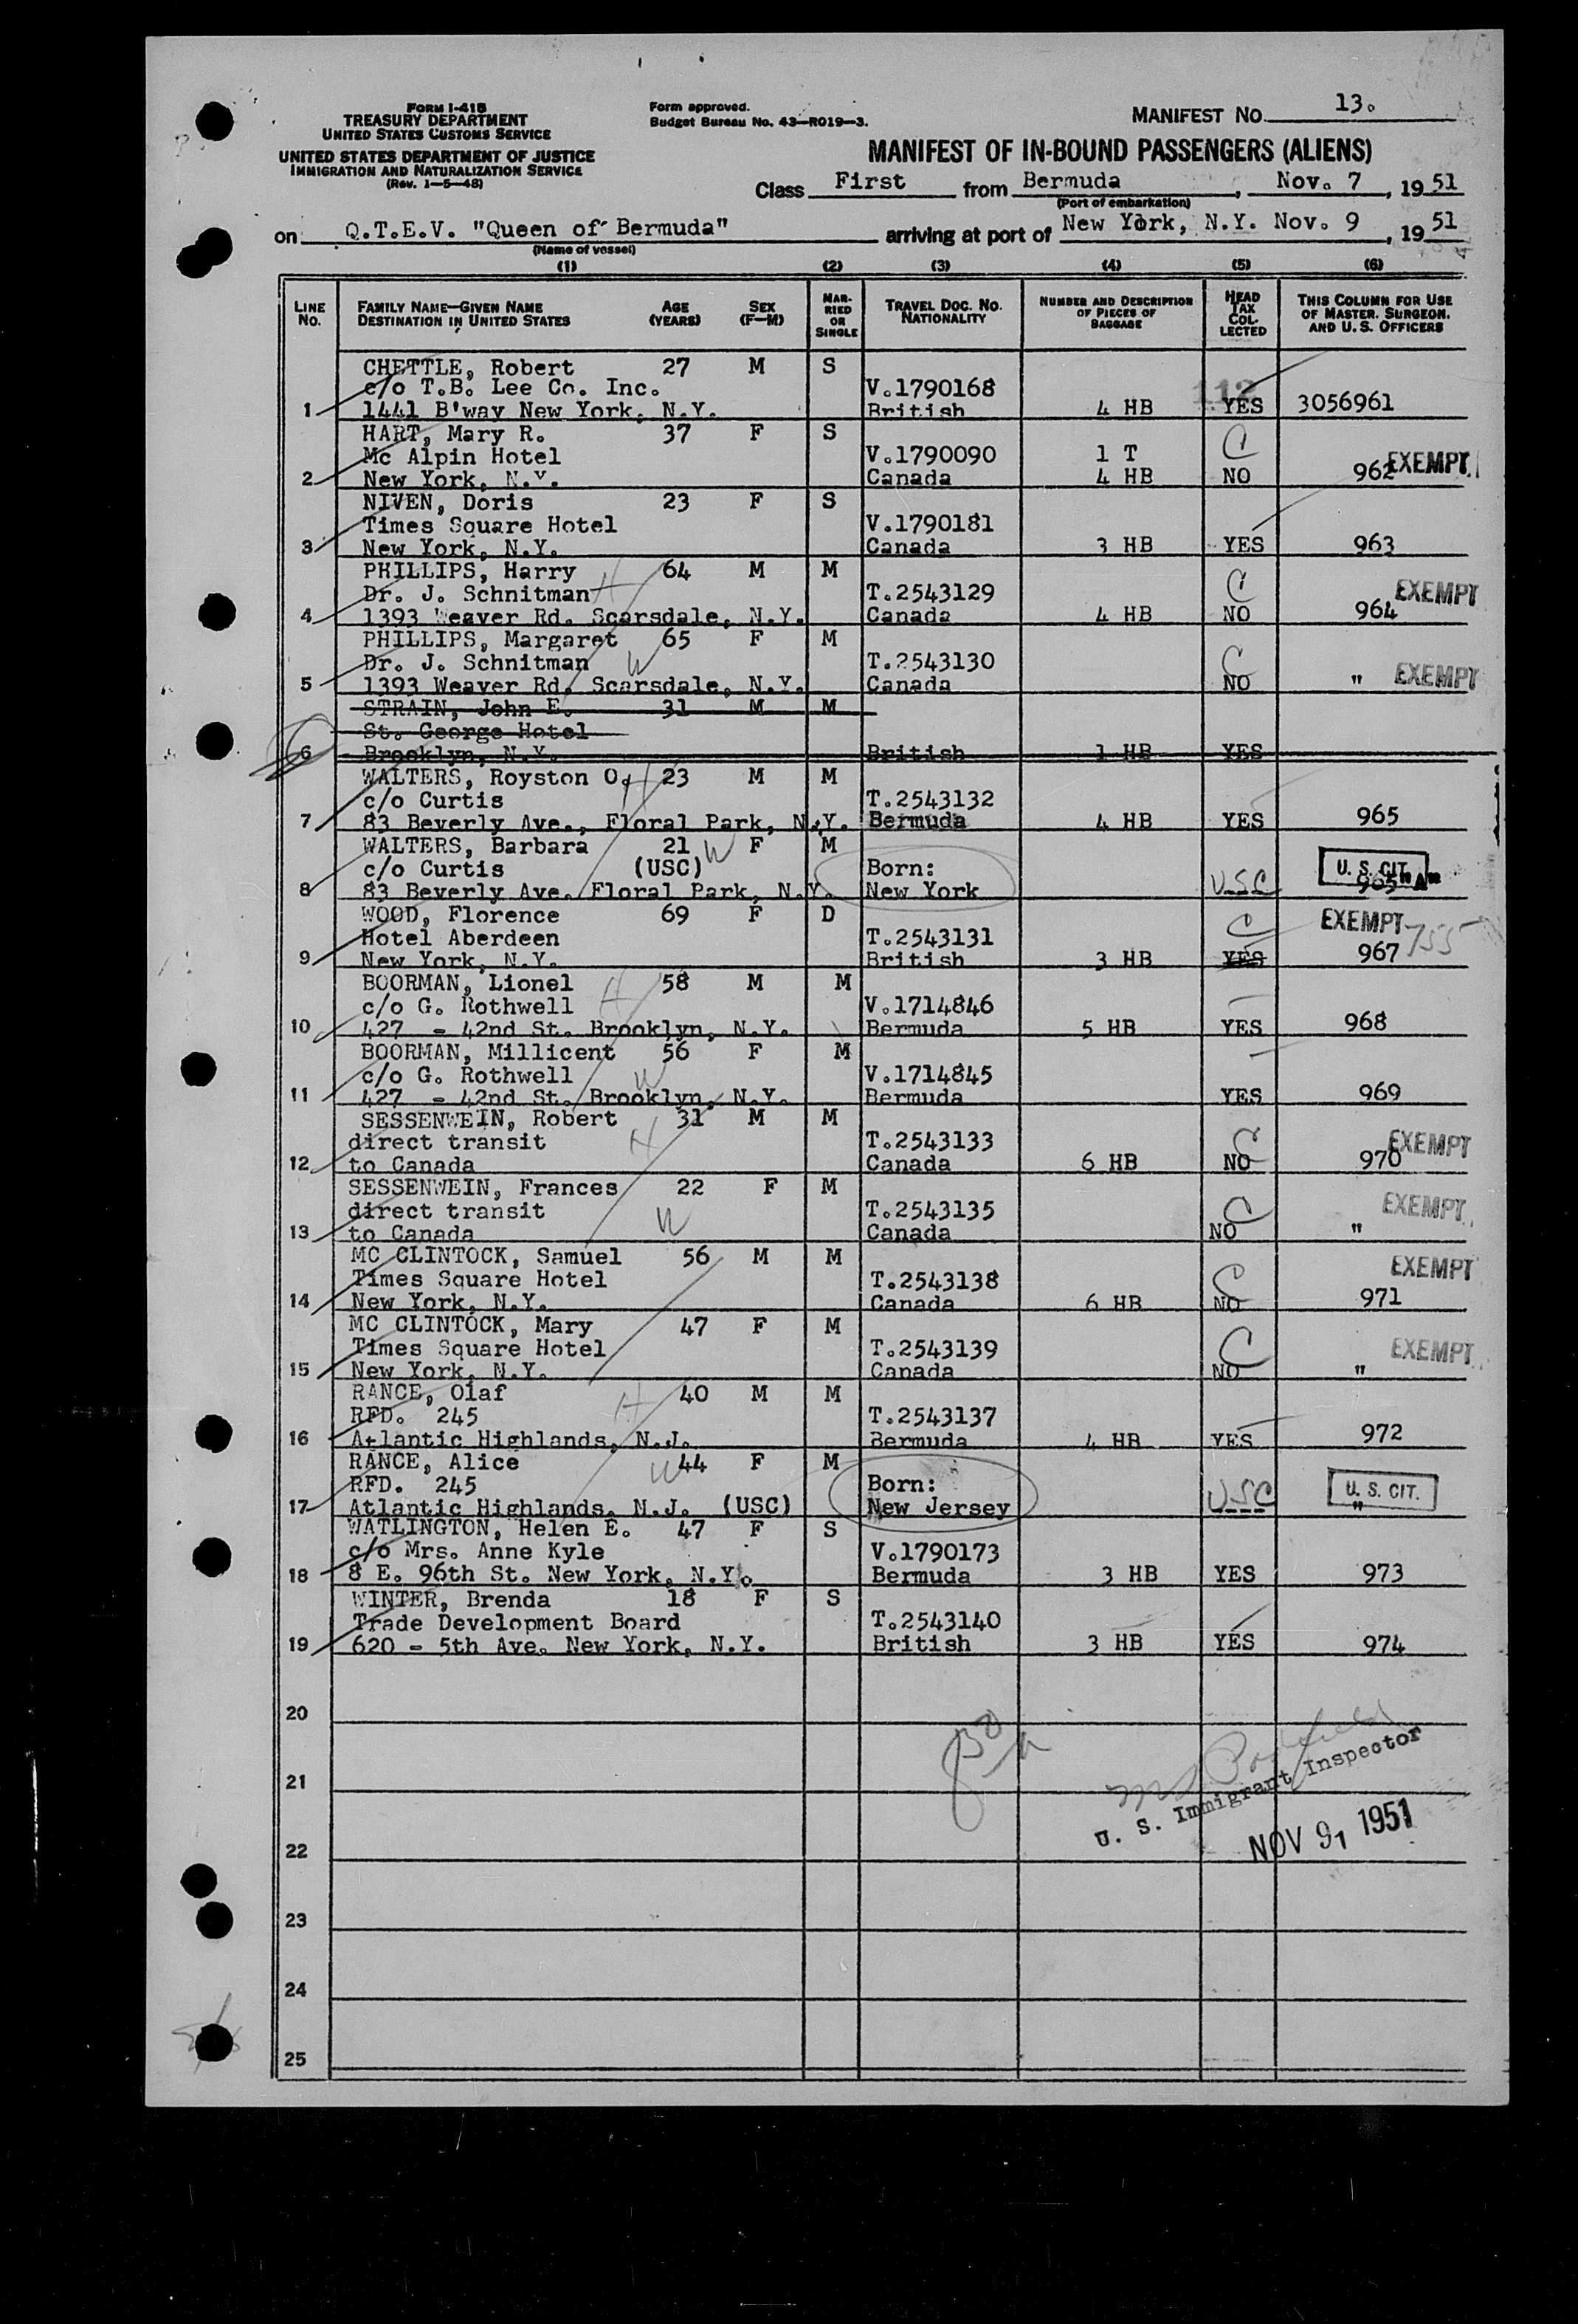 FORM I-415
TREASURY DEPARTMENT
UNITED STATES CUSTOMS SERVICE
UNITED STATES DEPARTMENT OF JUSTICE
IMMIGRATION AND NATURALIZATION SERVICE
(Rev. 1-5-48)
Form approved.
Budget Bureau No. 43-R019-3.
MANIFEST NO. 13.
MANIFEST OF IN-BOUND PASSENGERS (ALIENS)
Class First from Bermuda, Nov. 7, 1951
(Port of embarkation)
on Q.T.E.V. "Queen of Bermuda" arriving at port of New York, N.Y. Nov. 9, 1951
(Name of vessel)
(1) (2) (3) (4) (5) (6)
LINE NO. FAMILY NAME—GIVEN NAME DESTINATION IN UNITED STATES AGE (YEARS) SEX (F—M) MARRIED OR SINGLE TRAVEL DOC. NO. NATIONALITY NUMBER AND DESCRIPTION OF PIECES OF BAGGAGE HEAD TAX COLLECTED THIS COLUMN FOR USE OF MASTER, SURGEON, AND U. S. OFFICERS
CHETTLE, Robert 27 M S
c/o T.B. Lee Co. Inc. V.1790168 112
1 1441 B'way New York, N.Y. British 4 HB YES 3056961
HART, Mary R. 37 F S
Mc Alpin Hotel V.1790090 1 T C
2 New York, N.Y. Canada 4 HB NO 962 EXEMPT
NIVEN, Doris 23 F S
Times Square Hotel V.1790181
3 New York, N.Y. Canada 3 HB YES 963
PHILLIPS, Harry H 64 M M
Dr. J. Schnitman T.2543129 C EXEMPT
4 1393 Weaver Rd. Scarsdale, N.Y. Canada 4 HB NO 964
PHILLIPS, Margaret 65 F M
Dr. J. Schnitman W T.2543130 C
5 1393 Weaver Rd. Scarsdale, N.Y. Canada NO " EXEMPT
STRAIN, John E. 31 M M
St. George Hotel
6 Brooklyn, N.Y. British 1 HB YES
WALTERS, Royston O. H 23 M M
c/o Curtis T.2543132
7 83 Beverly Ave., Floral Park, N.Y. Bermuda 4 HB YES 965
WALTERS, Barbara 21 W F M
c/o Curtis (USC) Born: U. S. CIT.
8 83 Beverly Ave. Floral Park, N.Y. New York USC 965"A"
WOOD, Florence 69 F D
Hotel Aberdeen T.2543131 C EXEMPT
9 New York, N.Y. British 3 HB YES 967 755
BOORMAN, Lionel 58 M M
c/o G. Rothwell H V.1714846
10 427 - 42nd St. Brooklyn, N.Y. Bermuda 5 HB YES 968
BOORMAN, Millicent 56 F M
c/o G. Rothwell W V.1714845
11 427 - 42nd St. Brooklyn, N.Y. Bermuda YES 969
SESSENWEIN, Robert 31 M M
direct transit H T.2543133 C EXEMPT
12 to Canada Canada 6 HB NO 970
SESSENWEIN, Frances 22 F M
direct transit W T.2543135 C EXEMPT
13 to Canada Canada NO "
MC CLINTOCK, Samuel 56 M M
Times Square Hotel T.2543138 C EXEMPT
14 New York, N.Y. Canada 6 HB NO 971
MC CLINTOCK, Mary 47 F M
Times Square Hotel T.2543139 C EXEMPT
15 New York, N.Y. Canada NO "
RANCE, Olaf H 40 M M
RFD. 245 T.2543137
16 Atlantic Highlands, N.J. Bermuda 4 HB YES 972
RANCE, Alice W 44 F M
RFD. 245 Born: U. S. CIT.
17 Atlantic Highlands, N.J. (USC) New Jersey USC "
WATLINGTON, Helen E. 47 F S
c/o Mrs. Anne Kyle V.1790173
18 8 E. 96th St. New York, N.Y. Bermuda 3 HB YES 973
WINTER, Brenda 18 F S
Trade Development Board T.2543140
19 620 - 5th Ave. New York, N.Y. British 3 HB YES 974
20
21
U. S. Immigrant Inspector
22
NOV 9 1951
23
24
25